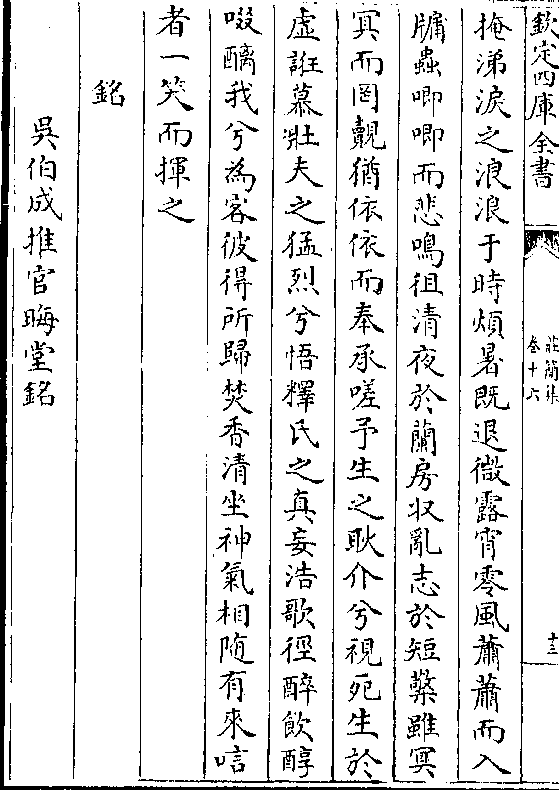 欽定四庫全書
莊簡集
卷十六
十三
掩涕淚之浪浪于時煩暑既退微露宵零風蕭蕭而入
牖蟲唧唧而悲鳴徂清夜於蘭房収亂志於短檠雖冥
冥而罔覿猶依依而奉承嗟予生之耿介兮視死生於
虛誑慕壯夫之猛烈兮悟釋氏之真妄浩歌徑醉飲醇
啜醨我兮為客彼得所歸焚香清坐神氣相随有來唁
者一笑而揮之
銘
吳伯成推官晦堂銘